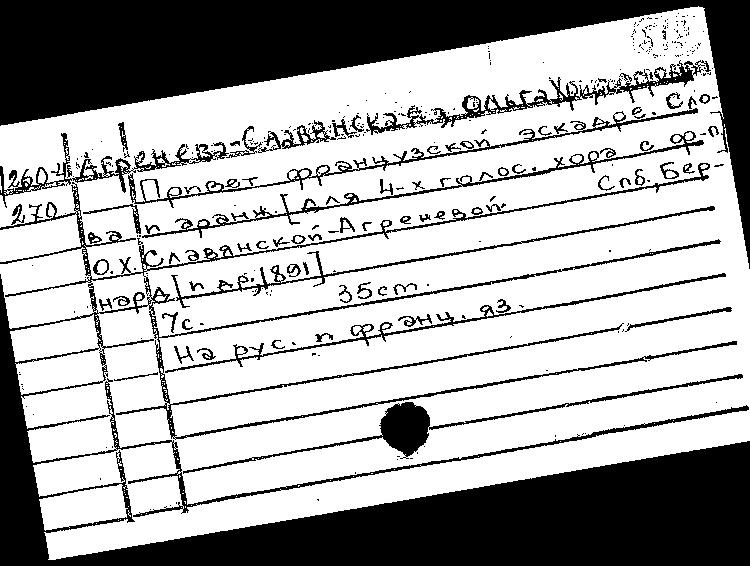 513
260-4 Агренева-Славянская, Ольга Христофоровна
270 Привет французской эскадре. Сло-
ва и аранж. [для 4-х голос. хора с ф-п]
О.Х. Славянской-Агреневой. Спб., Бер-
нард [и др., 1891]
7с. 35cm.
На рус. и франц. яз.